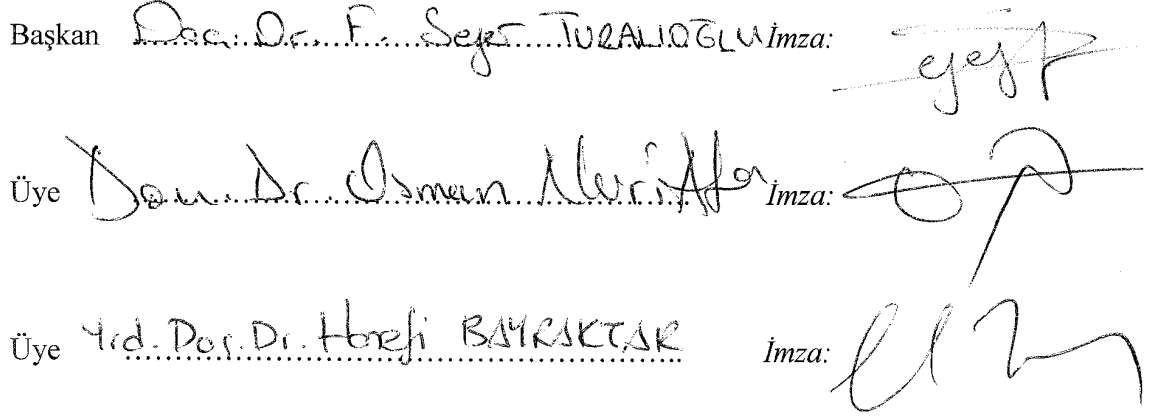 Başkan Doç. Dr. F. Sezer TURALIOĞLU İmza:
Üye Doç. Dr. Osman Nuri İmza:
Üye Yrd. Doç. Dr. Hanefi BAYRAKTAR İmza: